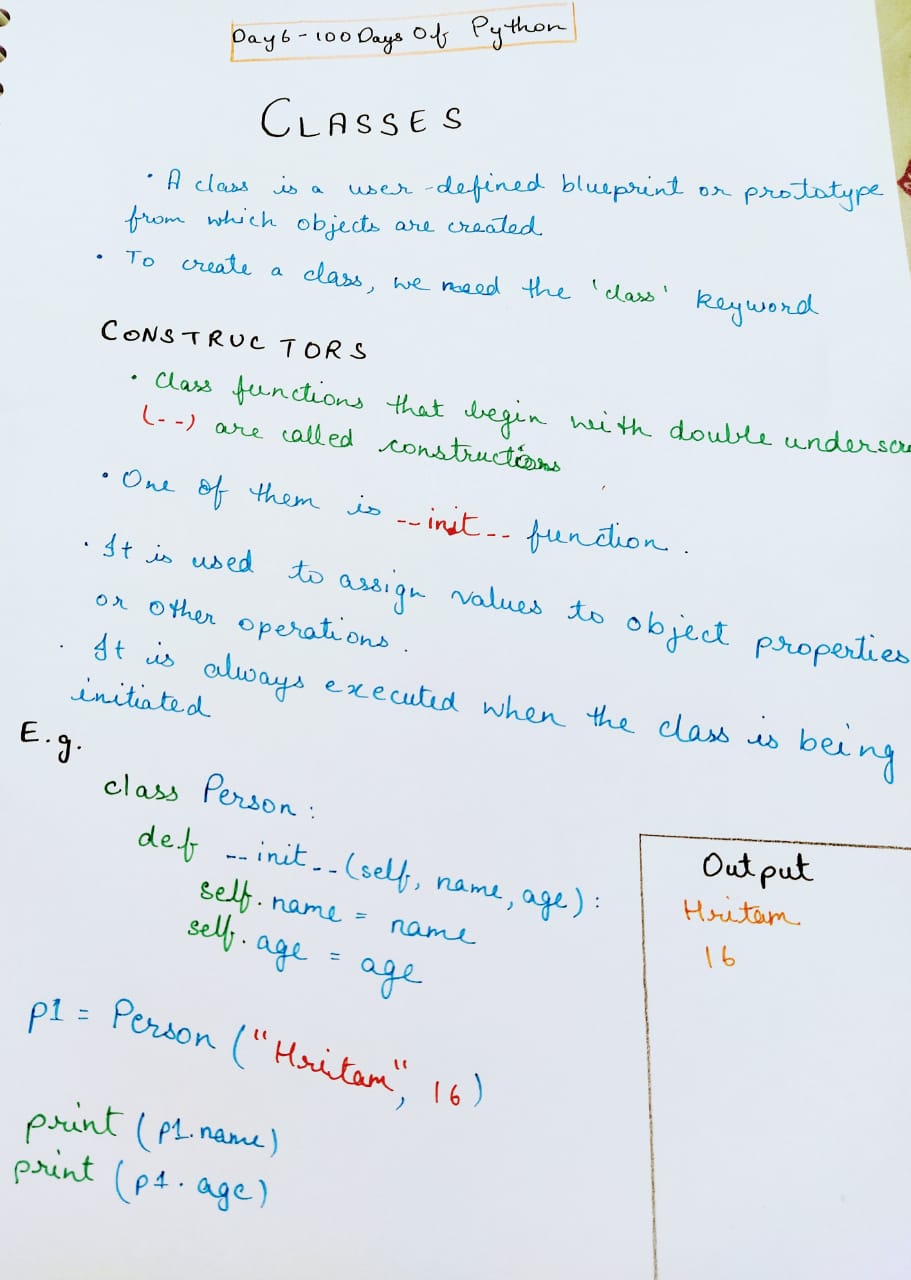 Day 6 - 100 Days Of Python
CLASSES
• A class is a user-defined blueprint or prototype
from which objects are created
• To create a class, we need the 'class' keyword
CONSTRUCTORS
• Class functions that begin with double undersco
(--) are called constructions
• One of them is --init-- function.
• It is used to assign values to object properties
or other operations.
• It is always executed when the class is being
initiated
E.g.
class Person:
def --init--(self, name, age):
self.name = name
self.age = age
p1 = Person ("Hritam", 16)
print (p1.name)
print (p1.age)
Output
Hritam
16